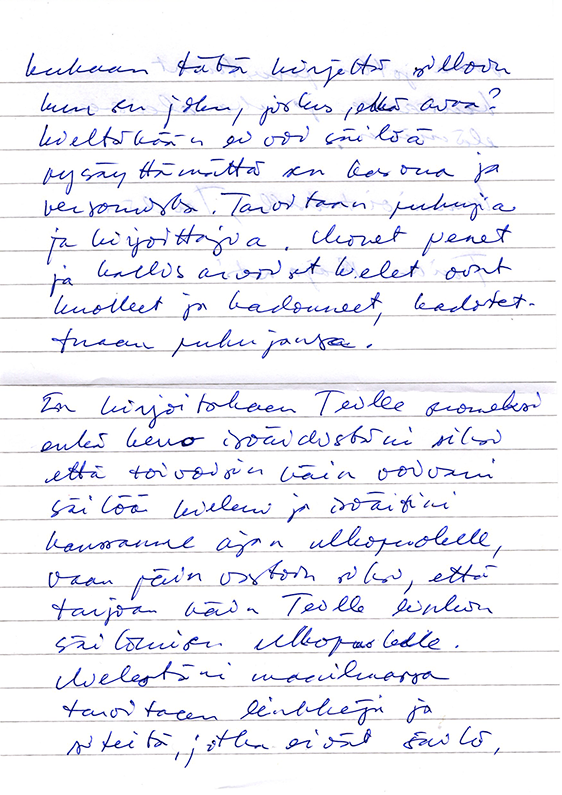 kukaan tätä kirjettä silloin
kun sen joku, joskus, ehkä avaa?
Kieltäkään ei voi säilöä
pysäyttämättä sen kasvua ja
versomista. Tarvitaan puhujia
ja kirjoittajia. Monet pienet
ja kallisarvoiset kielet ovat
kuolleet ja kadonneet, kadotet-
tuaan puhujansa.
En kirjoitakaan Teille suomeksi
enkä kerro isoäidistäni siksi
että toivoisin näin voivani
säilöä kieleni ja isoäitini
kanssanne ajan ulkopuolelle,
vaan päin vastoin siksi, että
tarjoan näin Teille linkin
säilömisen ulkopuolelle.
Mielestäni maailmassa
tarvitaan linkkejä ja
siteitä, jotka eivät säilö,